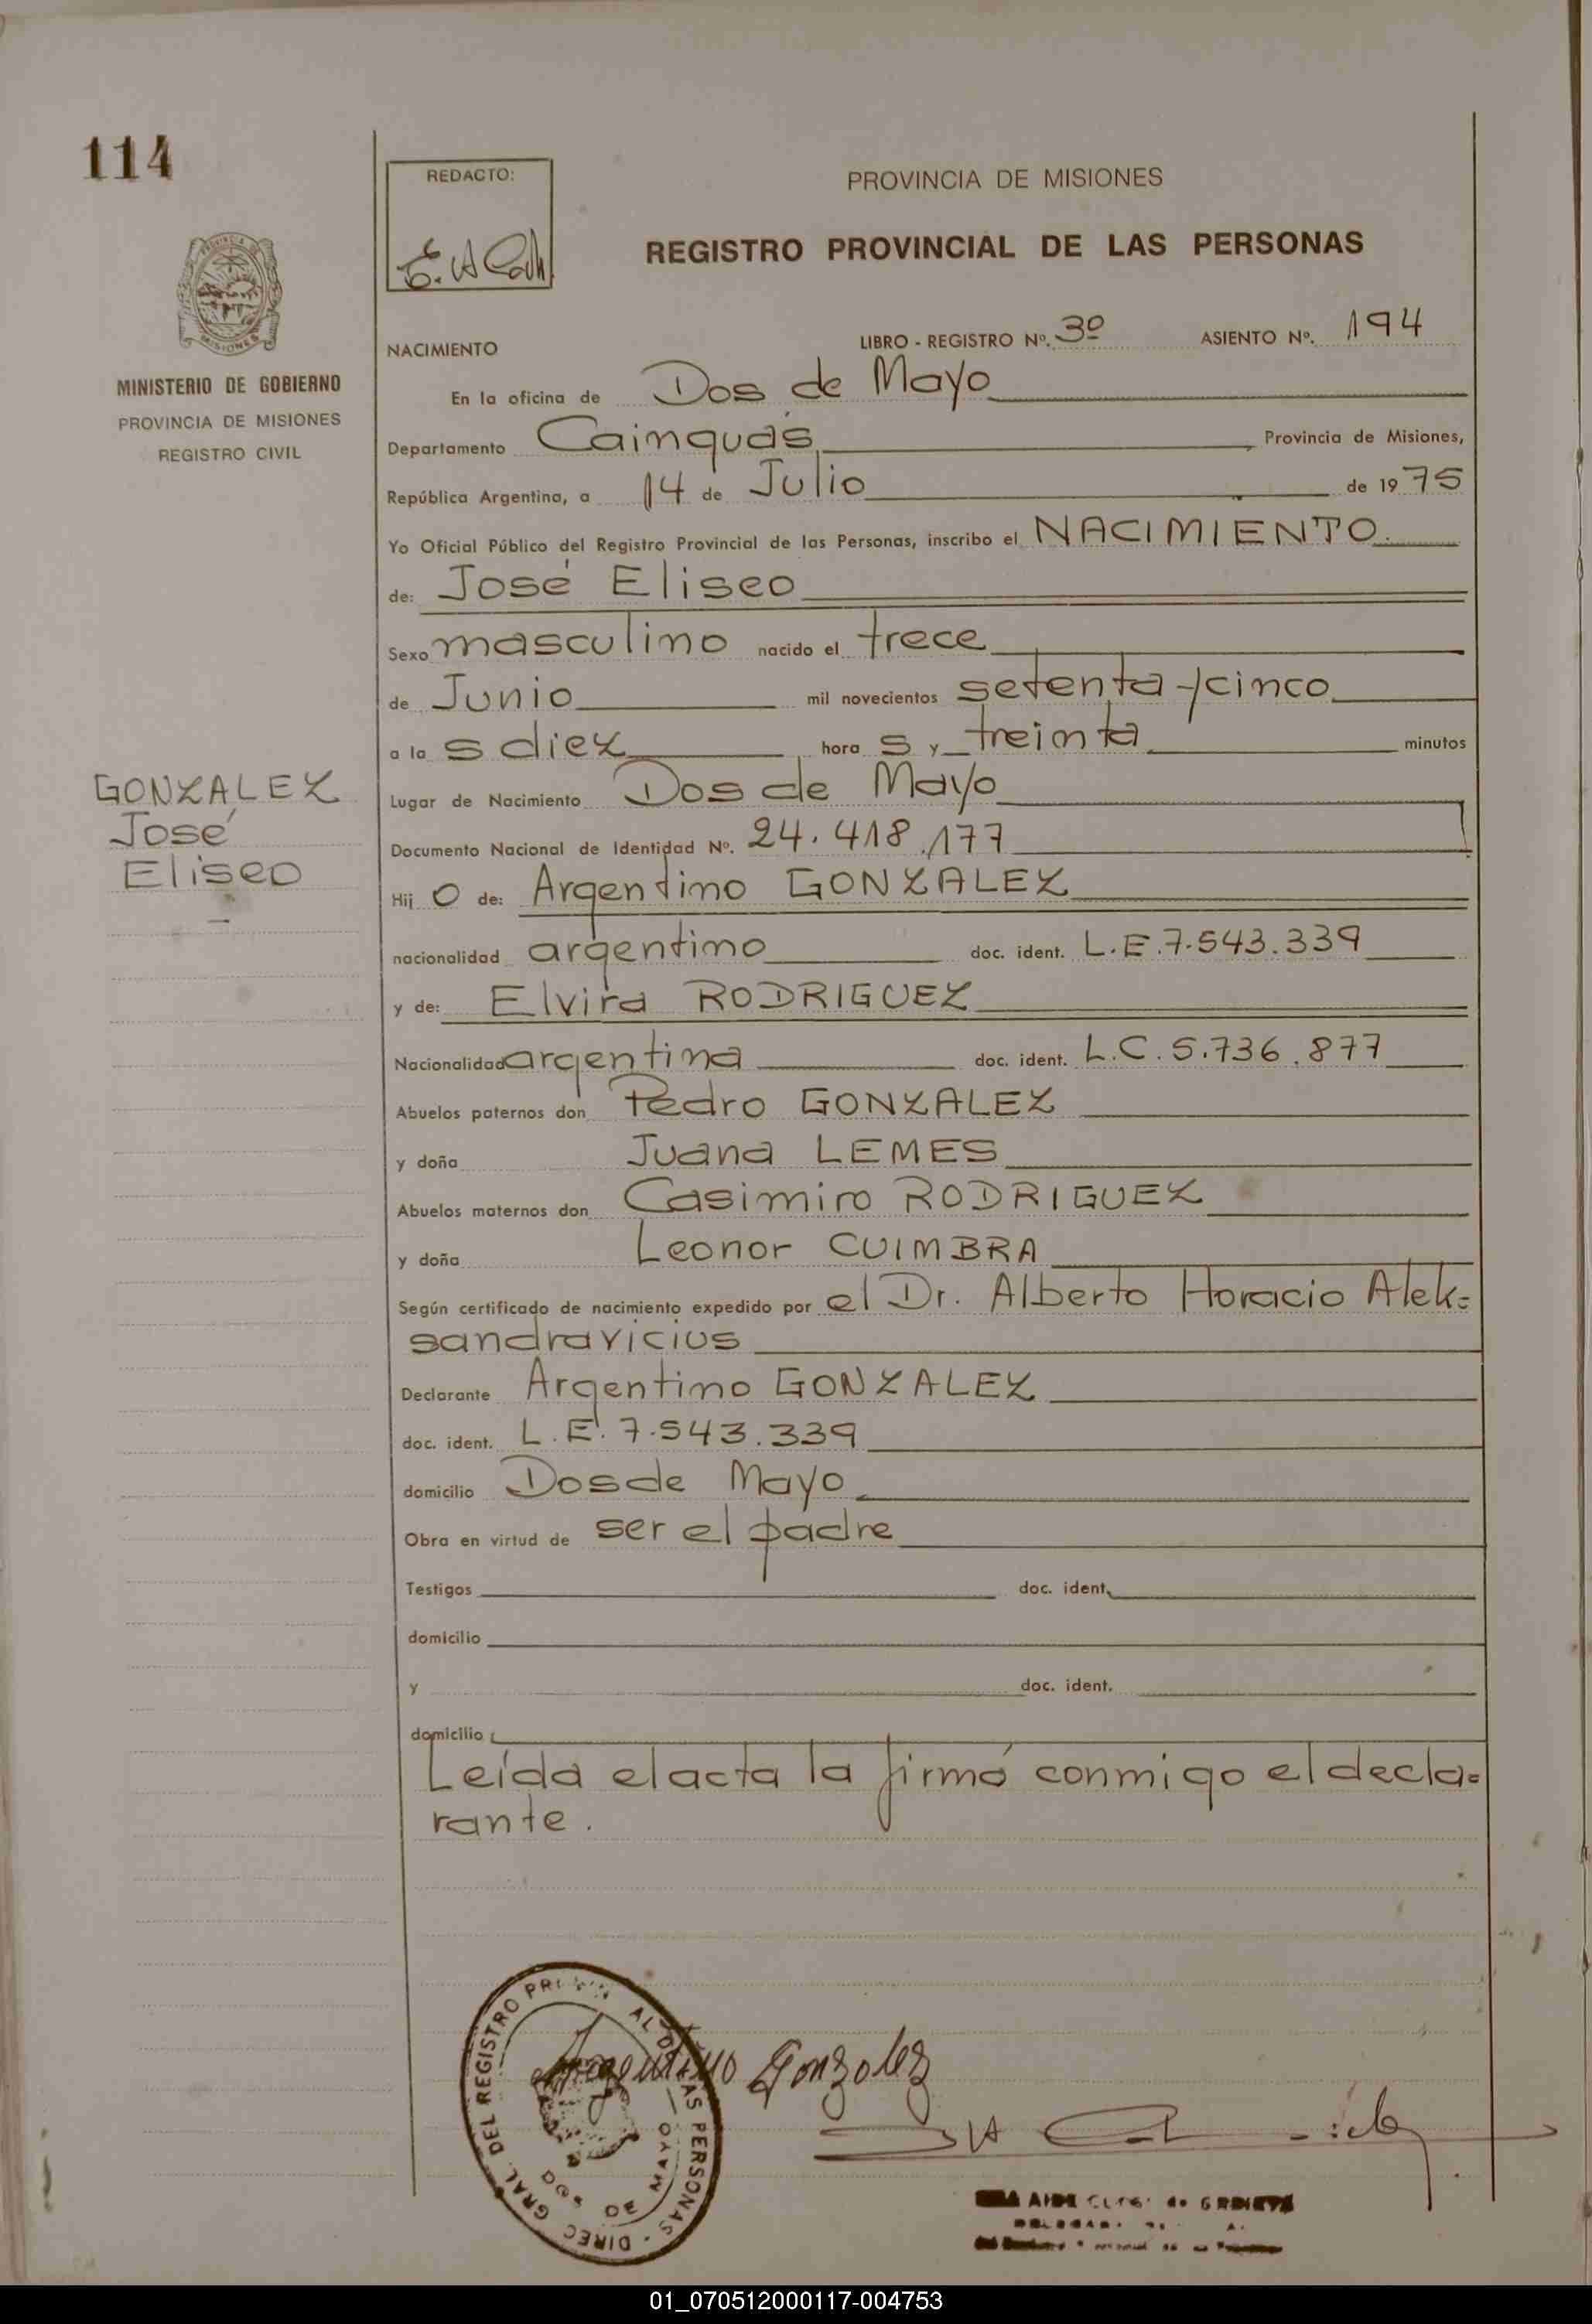 114
REDACTO:
PROVINCIA DE MISIONES
REGISTRO PROVINCIAL DE LAS PERSONAS
MISIONES
MINISTERIO DE GOBIERNO
PROVINCIA DE MISIONES
REGISTRO CIVIL
NACIMIENTO LIBRO - REGISTRO Nº. 3º ASIENTO Nº. 194
En la oficina de Dos de Mayo
Departamento Cainguás Provincia de Misiones,
República Argentina, a 14 de Julio de 1975
Yo Oficial Público del Registro Provincial de las Personas, inscribo el NACIMIENTO.
de: José Eliseo
Sexo masculino nacido el trece
de Junio mil novecientos setenta y cinco
a las diez horas y treinta minutos
GONZALEZ
José
Eliseo
Lugar de Nacimiento Dos de Mayo
Documento Nacional de Identidad Nº. 24.418.177
Hijo de: Argentino GONZALEZ
nacionalidad argentino doc. ident. L.E. 7.543.339
y de: Elvira RODRIGUEZ
Nacionalidad argentina doc. ident. L.C. 5.736.877
Abuelos paternos don Pedro GONZALEZ
y doña Juana LEMES
Abuelos maternos don Casimiro RODRIGUEZ
y doña Leonor CUIMBRA
Según certificado de nacimiento expedido por el Dr. Alberto Horacio Alek=
sandravicius
Declarante Argentino GONZALEZ
doc. ident. L.E. 7.543.339
domicilio Dos de Mayo
Obra en virtud de ser el padre
Testigos doc. ident.
domicilio
y doc. ident.
domicilio
Leída el acta la firmó conmigo el decla=
rante.
Argentino Gonzalez
DIREC. GRAL. DEL REGISTRO AL DE LAS PERSONAS
DOS DE MAYO
01_070512000117-004753